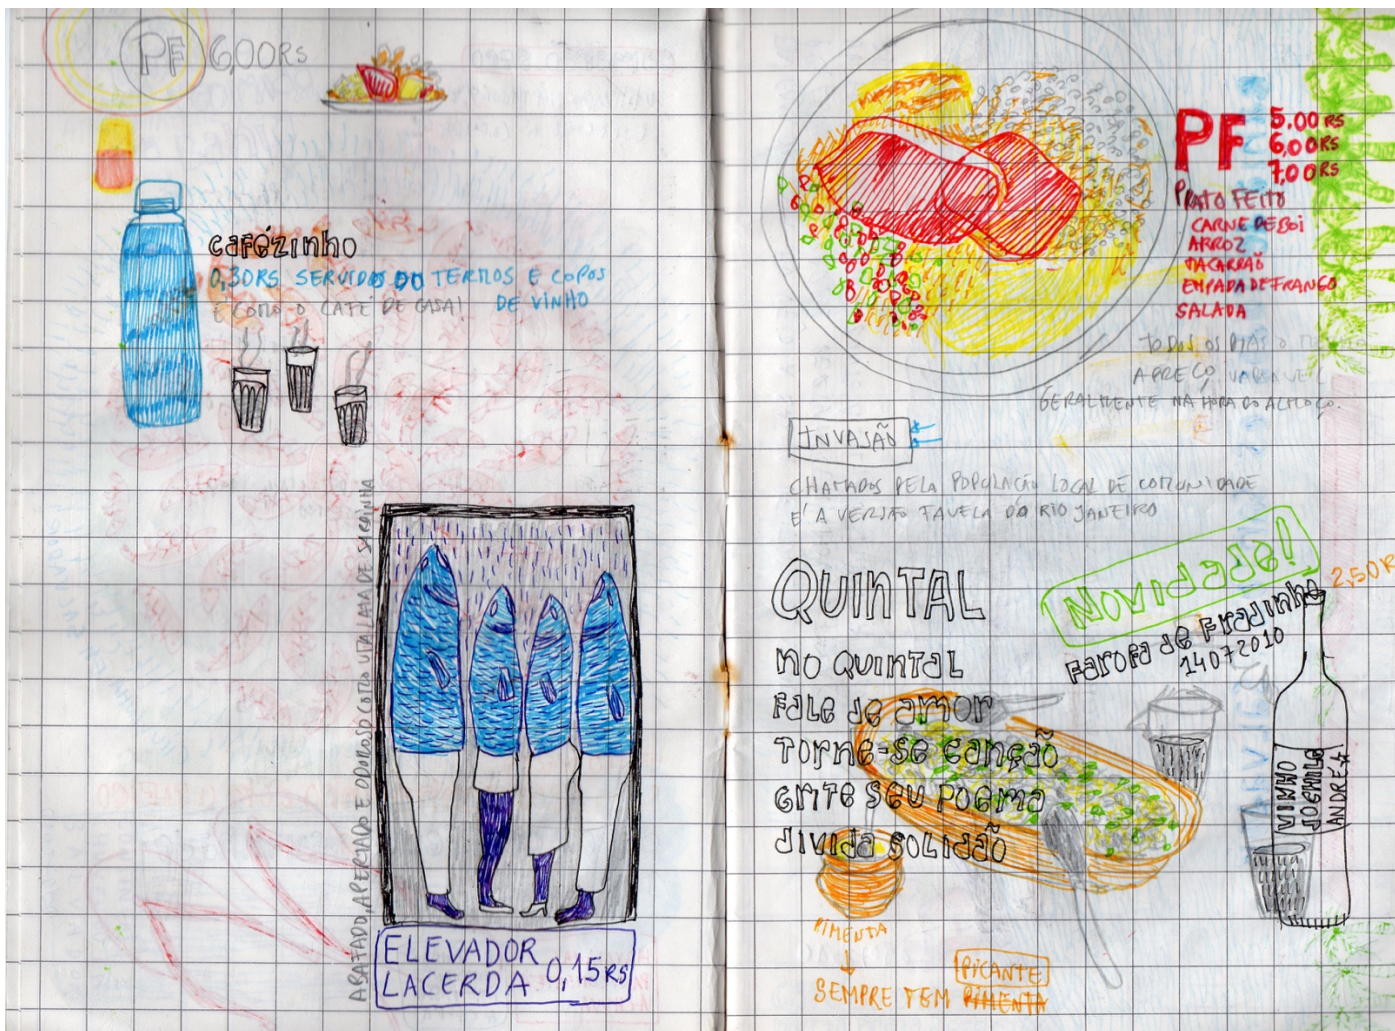 PF 6,00RS
cafézinho
0,30RS SERVIDOS DO TERMOS E COPOS
É COMO O CAFÉ DE CASA! DE VINHO
ABAFADO, APERTADO E ODOROSO COMO UMA LATA DE SARDINHA
ELEVADOR
LACERDA 0,15RS
PF 5.00RS
6,00RS
7,00RS
PRATO FEITO
CARNE DE BOI
ARROZ
MACARRÃO
EMPADA DE FRANGO
SALADA
TODOS OS DIAS O
A PREÇO
GERALMENTE NA HORA DO ALMOÇO.
INVASÃO
CHAMADOS PELA POPULAÇÃO LOCAL DE COMUNIDADE
É A VERSÃO FAVELA DO RIO JANEIRO
QUINTAL
NO QUINTAL
FALE DE AMOR
TORNE-SE CANÇÃO
GRITE SEU POEMA
DIVIDA SOLIDÃO
NOVIDADE!
Farofa de Fradinho 2,50R
14072010
VINHO
ANDRE
PIMENTA
PICANTE
SEMPRE TEM PIMENTA